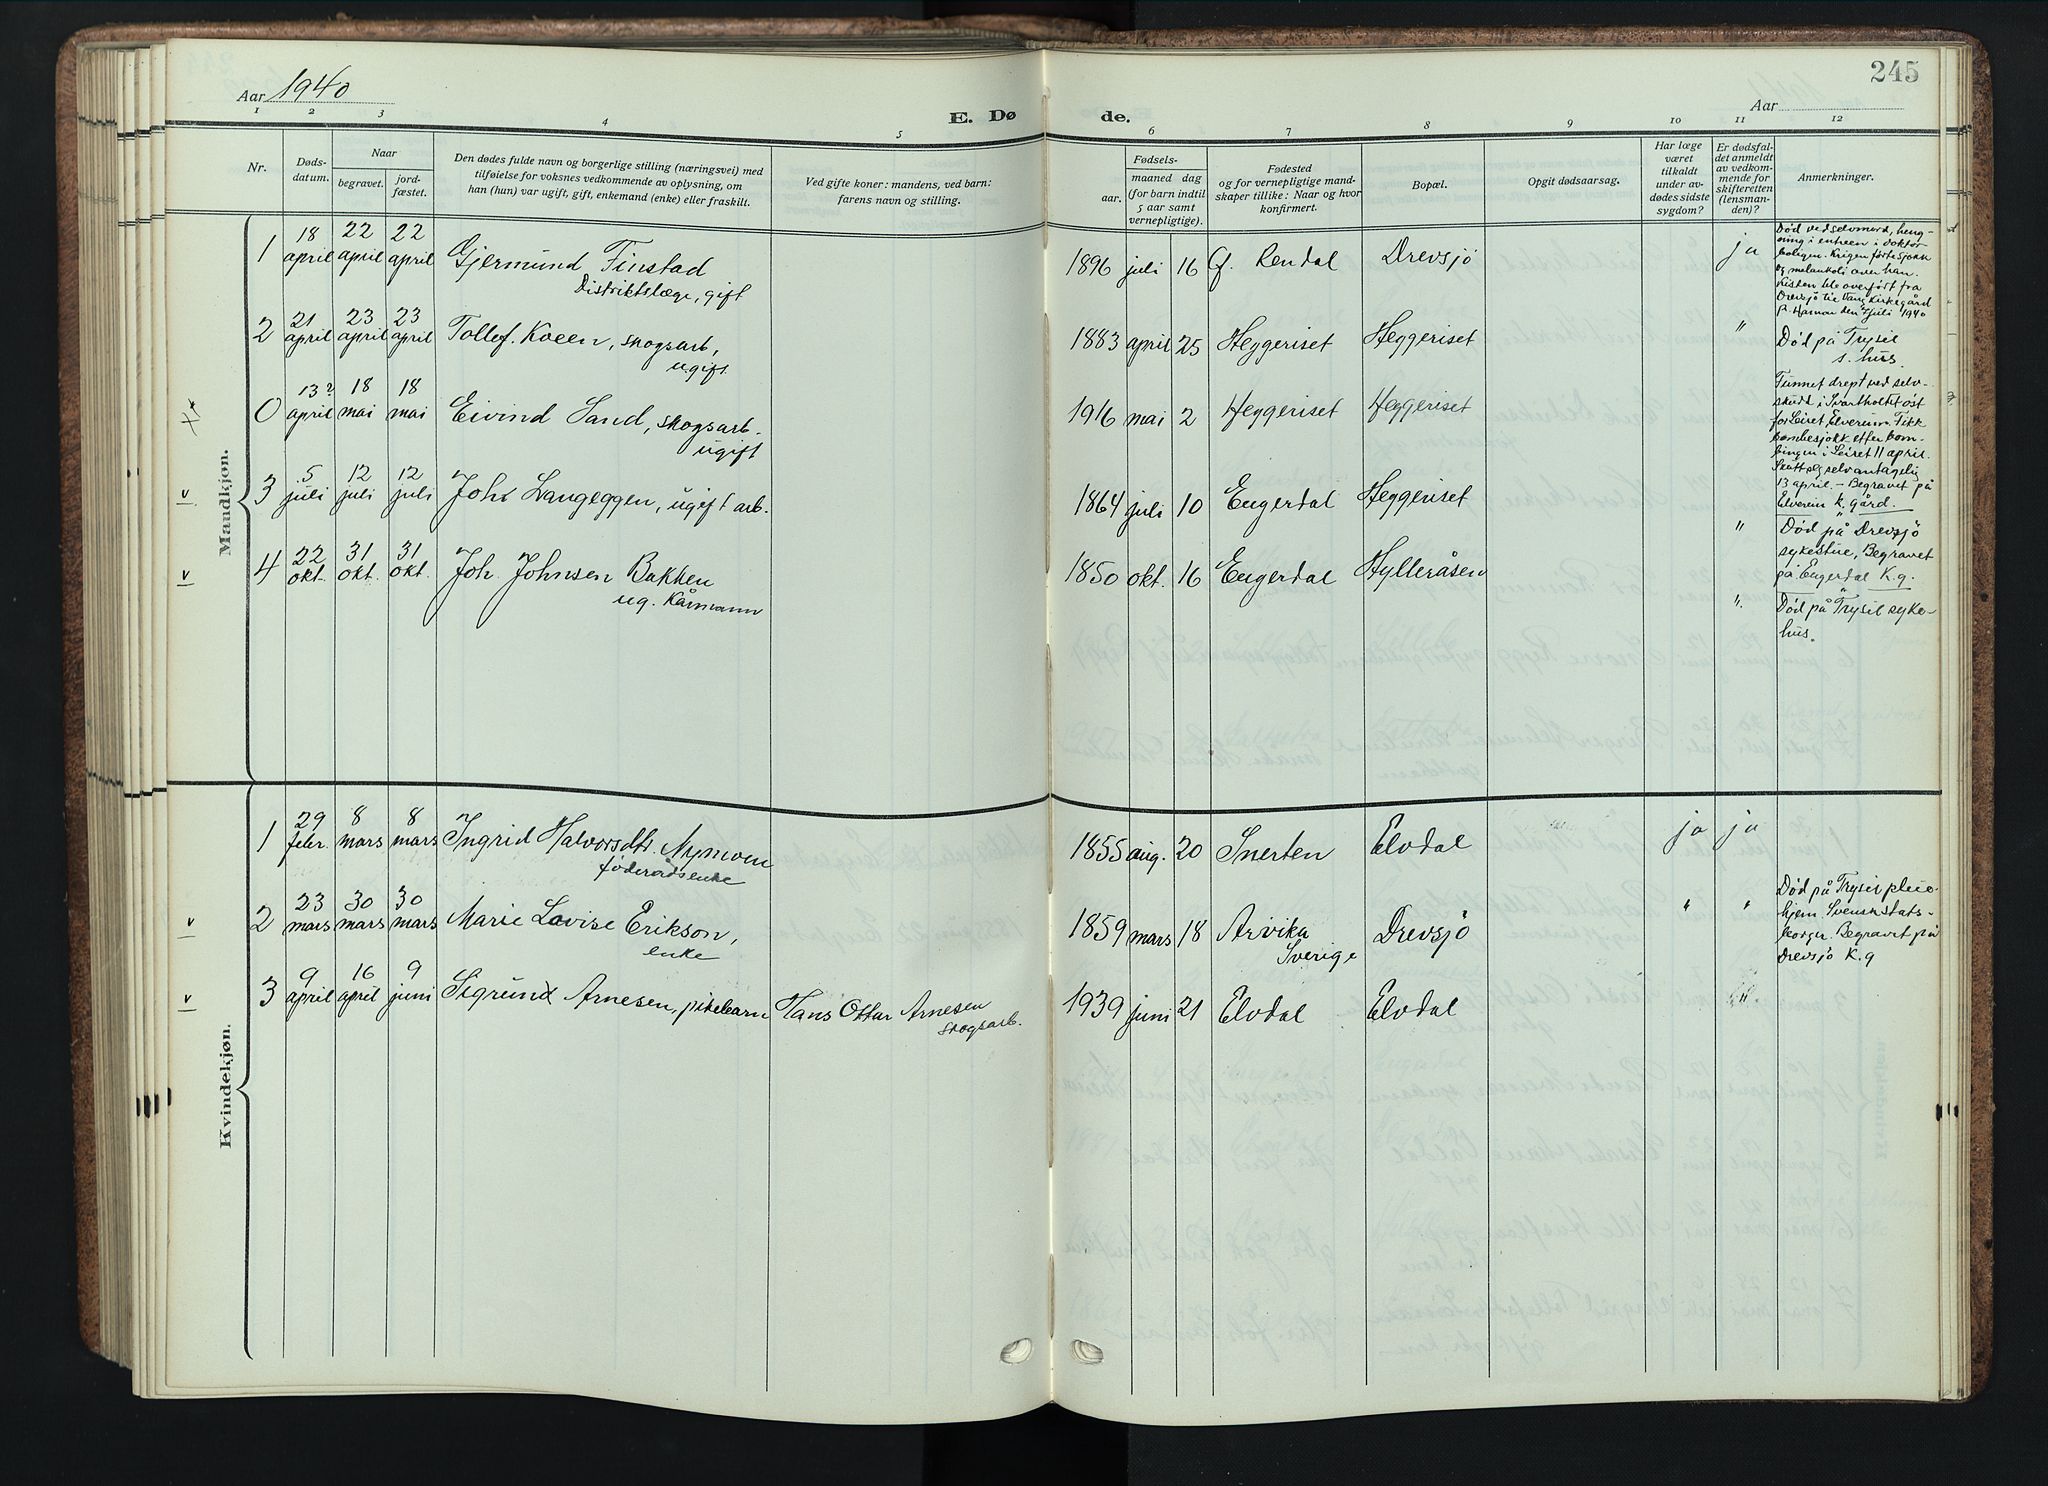 245
Aar 1940
Aar
E. Dø de.
1 2 3 4 5 6 7 8 9 10 11 12
Nr.
Døds-
datum.
Naar
begravet.
jord-
fæstet.
Den dødes fulde navn og borgerlige stilling (næringsvei) med
tilføielse for voksnes vedkommende av oplysning, om
han (hun) var ugift, gift, enkemand (enke) eller fraskilt.
Ved gifte koner: mandens, ved barn:
farens navn og stilling.
Fødsels-
aar. maaned dag
(for barn indtil
5 aar samt
vernepligtige).
Fødested
og for vernepligtige mand-
skaper tillike: Naar og hvor
konfirmert.
Bopæl.
Opgit dødsaarsag.
Har læge
været
tilkaldt
under av-
dødes sidste
sygdom?
Er dødsfal-
det anmeldt
av vedkom-
mende for
skifteretten
(lensman-
den)?
Anmerkninger.
Mandkjøn.
1 18 april 22 april 22 april Gjermund Finstad 1896 juli 16 Ø. Rendal Drevsjø ja
Distriktslæge, gift
Død ved selvmord, heng-
ning i entreen i doktor
boligen. Krigen førte sjokk
og melankoli over han.
Kisten ble overført fra
Drevsjø til Vang kirkegård
p. Hamar den juli 1940
2 21 april 23 april 23 april Tollef. Kveen, skogsarb, 1883 april 25 Heggeriset Heggeriset "
ugift
Død på Trysil
s. hus.
0 13? april 18 mai 18 mai Eivind Sand, skogsarb. 1916 mai 2 Heggeriset Heggeriset
ugift
Funnet drept ved selv-
skudd i Svartholtet øst
for Leiret, Elverum. Fikk
bombesjokk etter bom-
bingen i Leiret 11 april.
Skutt seg selv antagelig
13 april. - Begravet på
Elverum k. gård.
v 3 5 juli 12 juli 12 juli Joh. Langeggen, ugift arb. 1864 juli 10 Engerdal Heggeriset "
Død på Drevsjø
sykestue, Begravet
på Engerdal K.g.
v 4 22 okt. 31 okt. 31 okt. Joh. Johnsen Bakken 1850 okt. 16 Engerdal Hylleråsen "
ug. kårmann
Død på Trysil syke-
hus.
Kvindekjøn.
1 29 febr. 8 mars 8 mars Ingrid Halvorsdtr. Nymoen 1855 aug. 20 Snerten Elvdal ja ja
føderådsenke
v 2 23 mars 30 mars 30 mars Marie Lovise Erikson, 1859 mars 18 Arvika Drevsjø " "
enke Sverige
Død på Trysil pleie-
hjem. Svensk stats-
borger. Begravet på
Drevsjø K.g
v 3 9 april 16 april 9 juni Sigrund Arnesen, pikebarn Hans Ottar Arnesen 1939 juni 21 Elvdal Elvdal "
skogsarb.